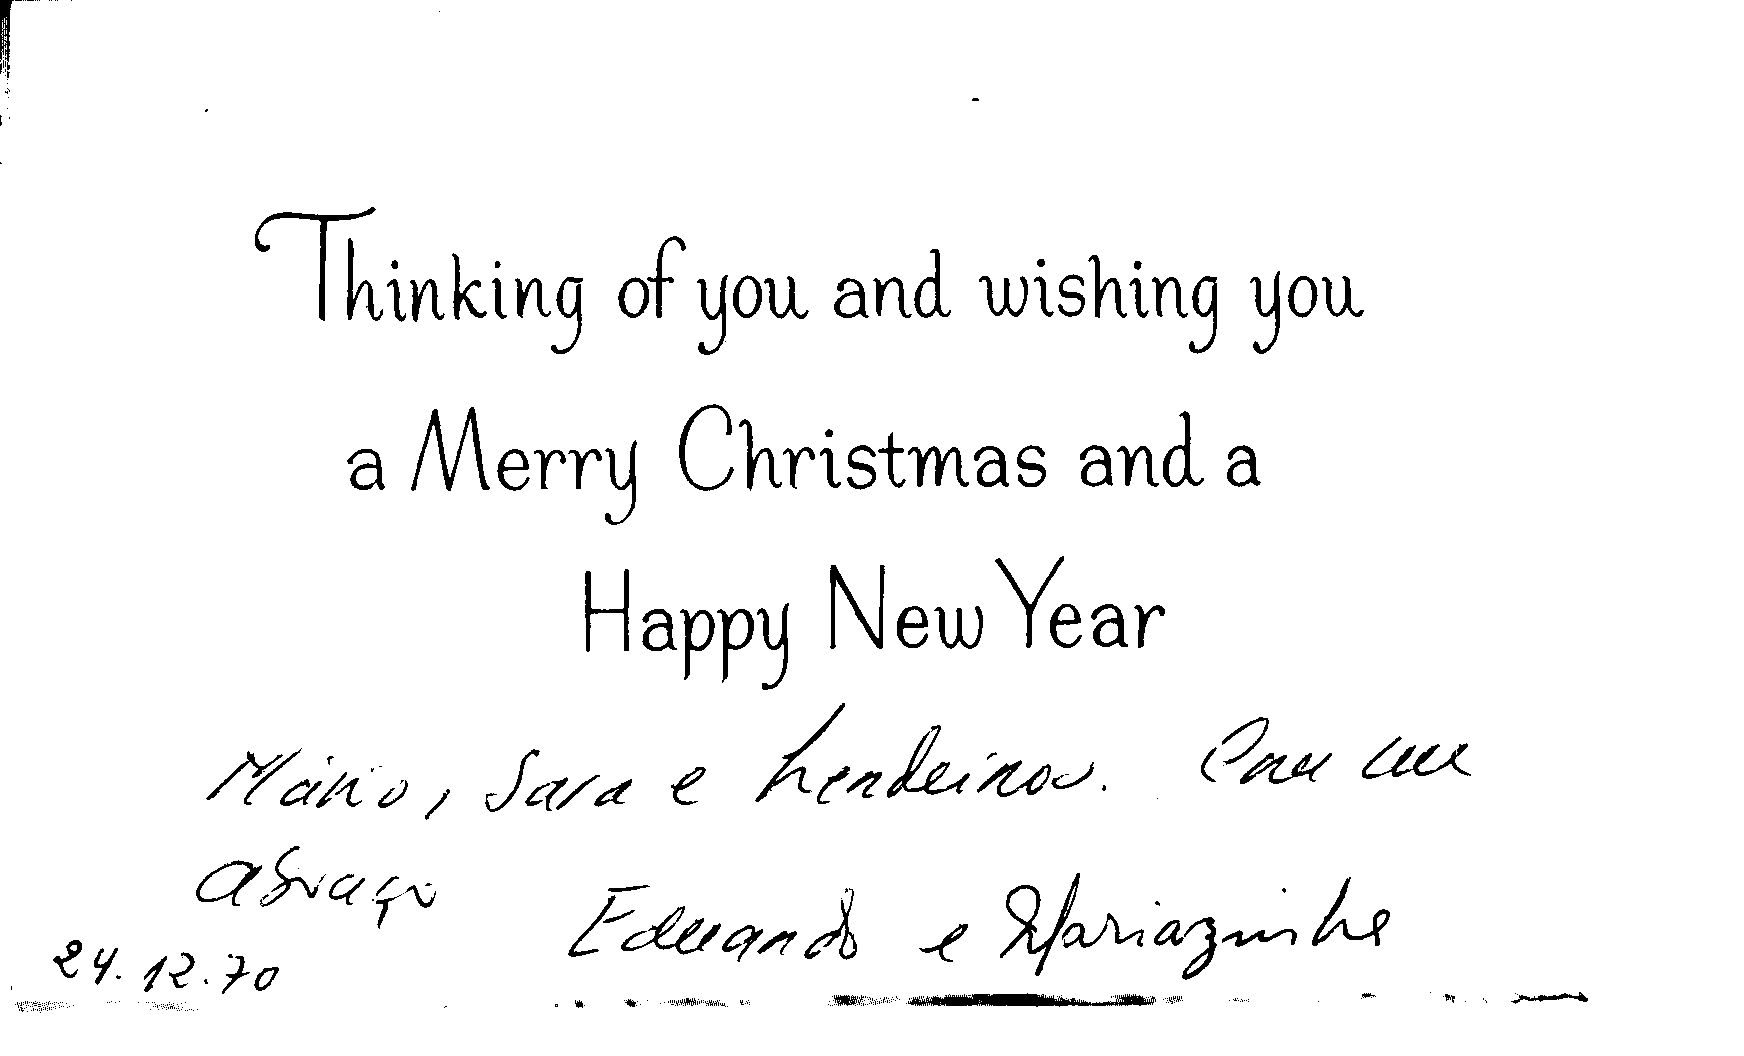 Thinking of you and wishing you
a Merry Christmas and a
Happy New Year
Mário, Sara e herdeiros. Com um
abraço
Eduardo e Mariazinha
24.12.70